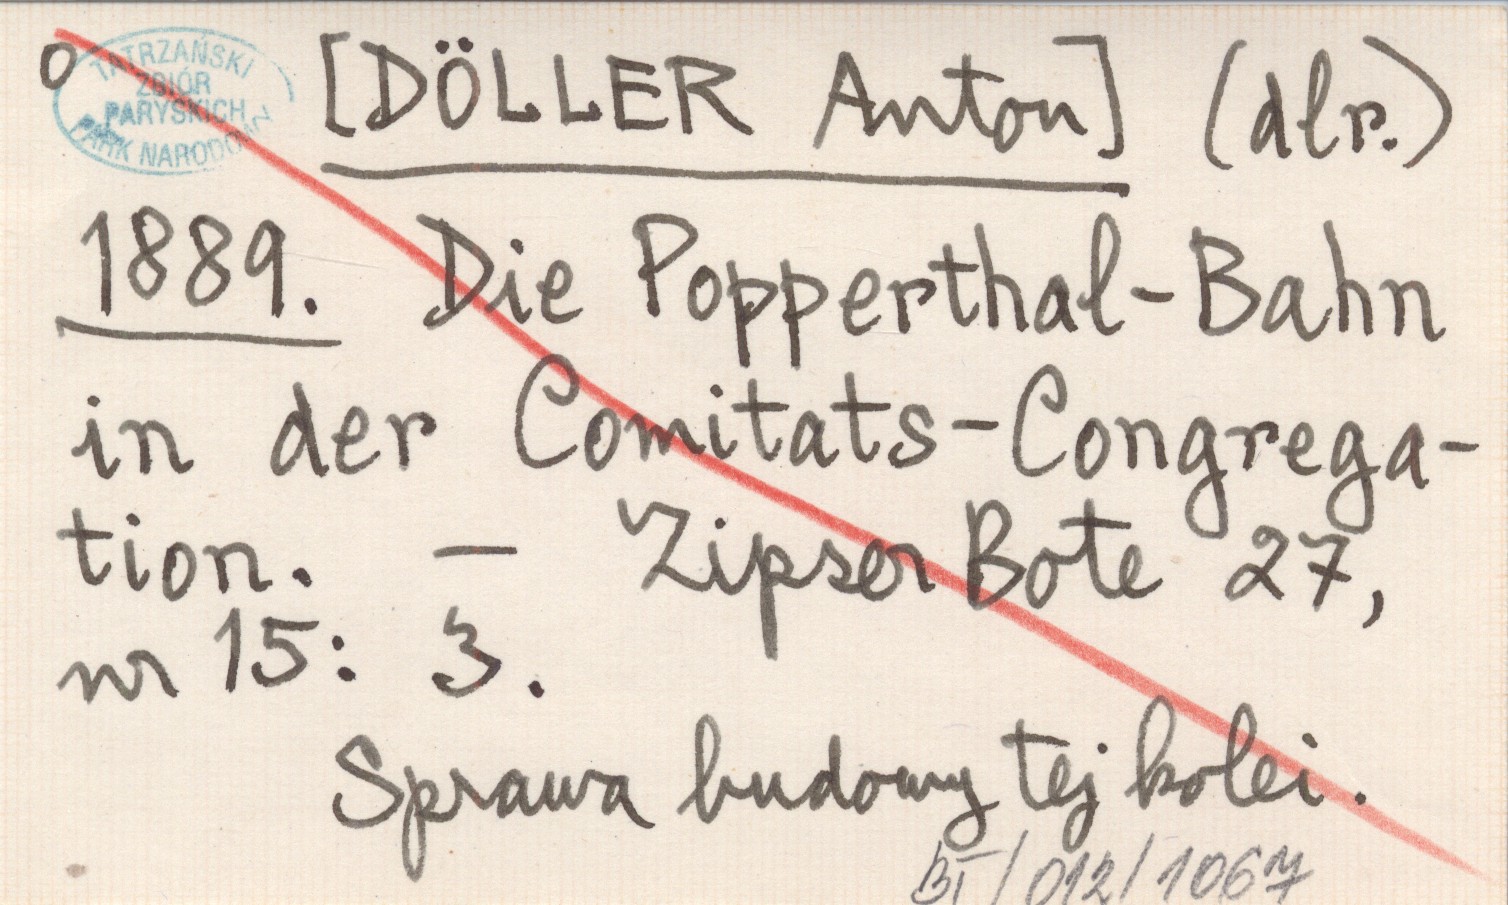 o
TATRZAŃSKI
ZBIÓR
PARYSKICH
PARK NARODOWY
[DÖLLER Anton] (dlr.)
1889. Die Popperthal-Bahn
in der Comitats-Congrega-
tion. — Zipser Bote 27,
nr 15: 3.
Sprawa budowy tej kolei.
BT/012/1067